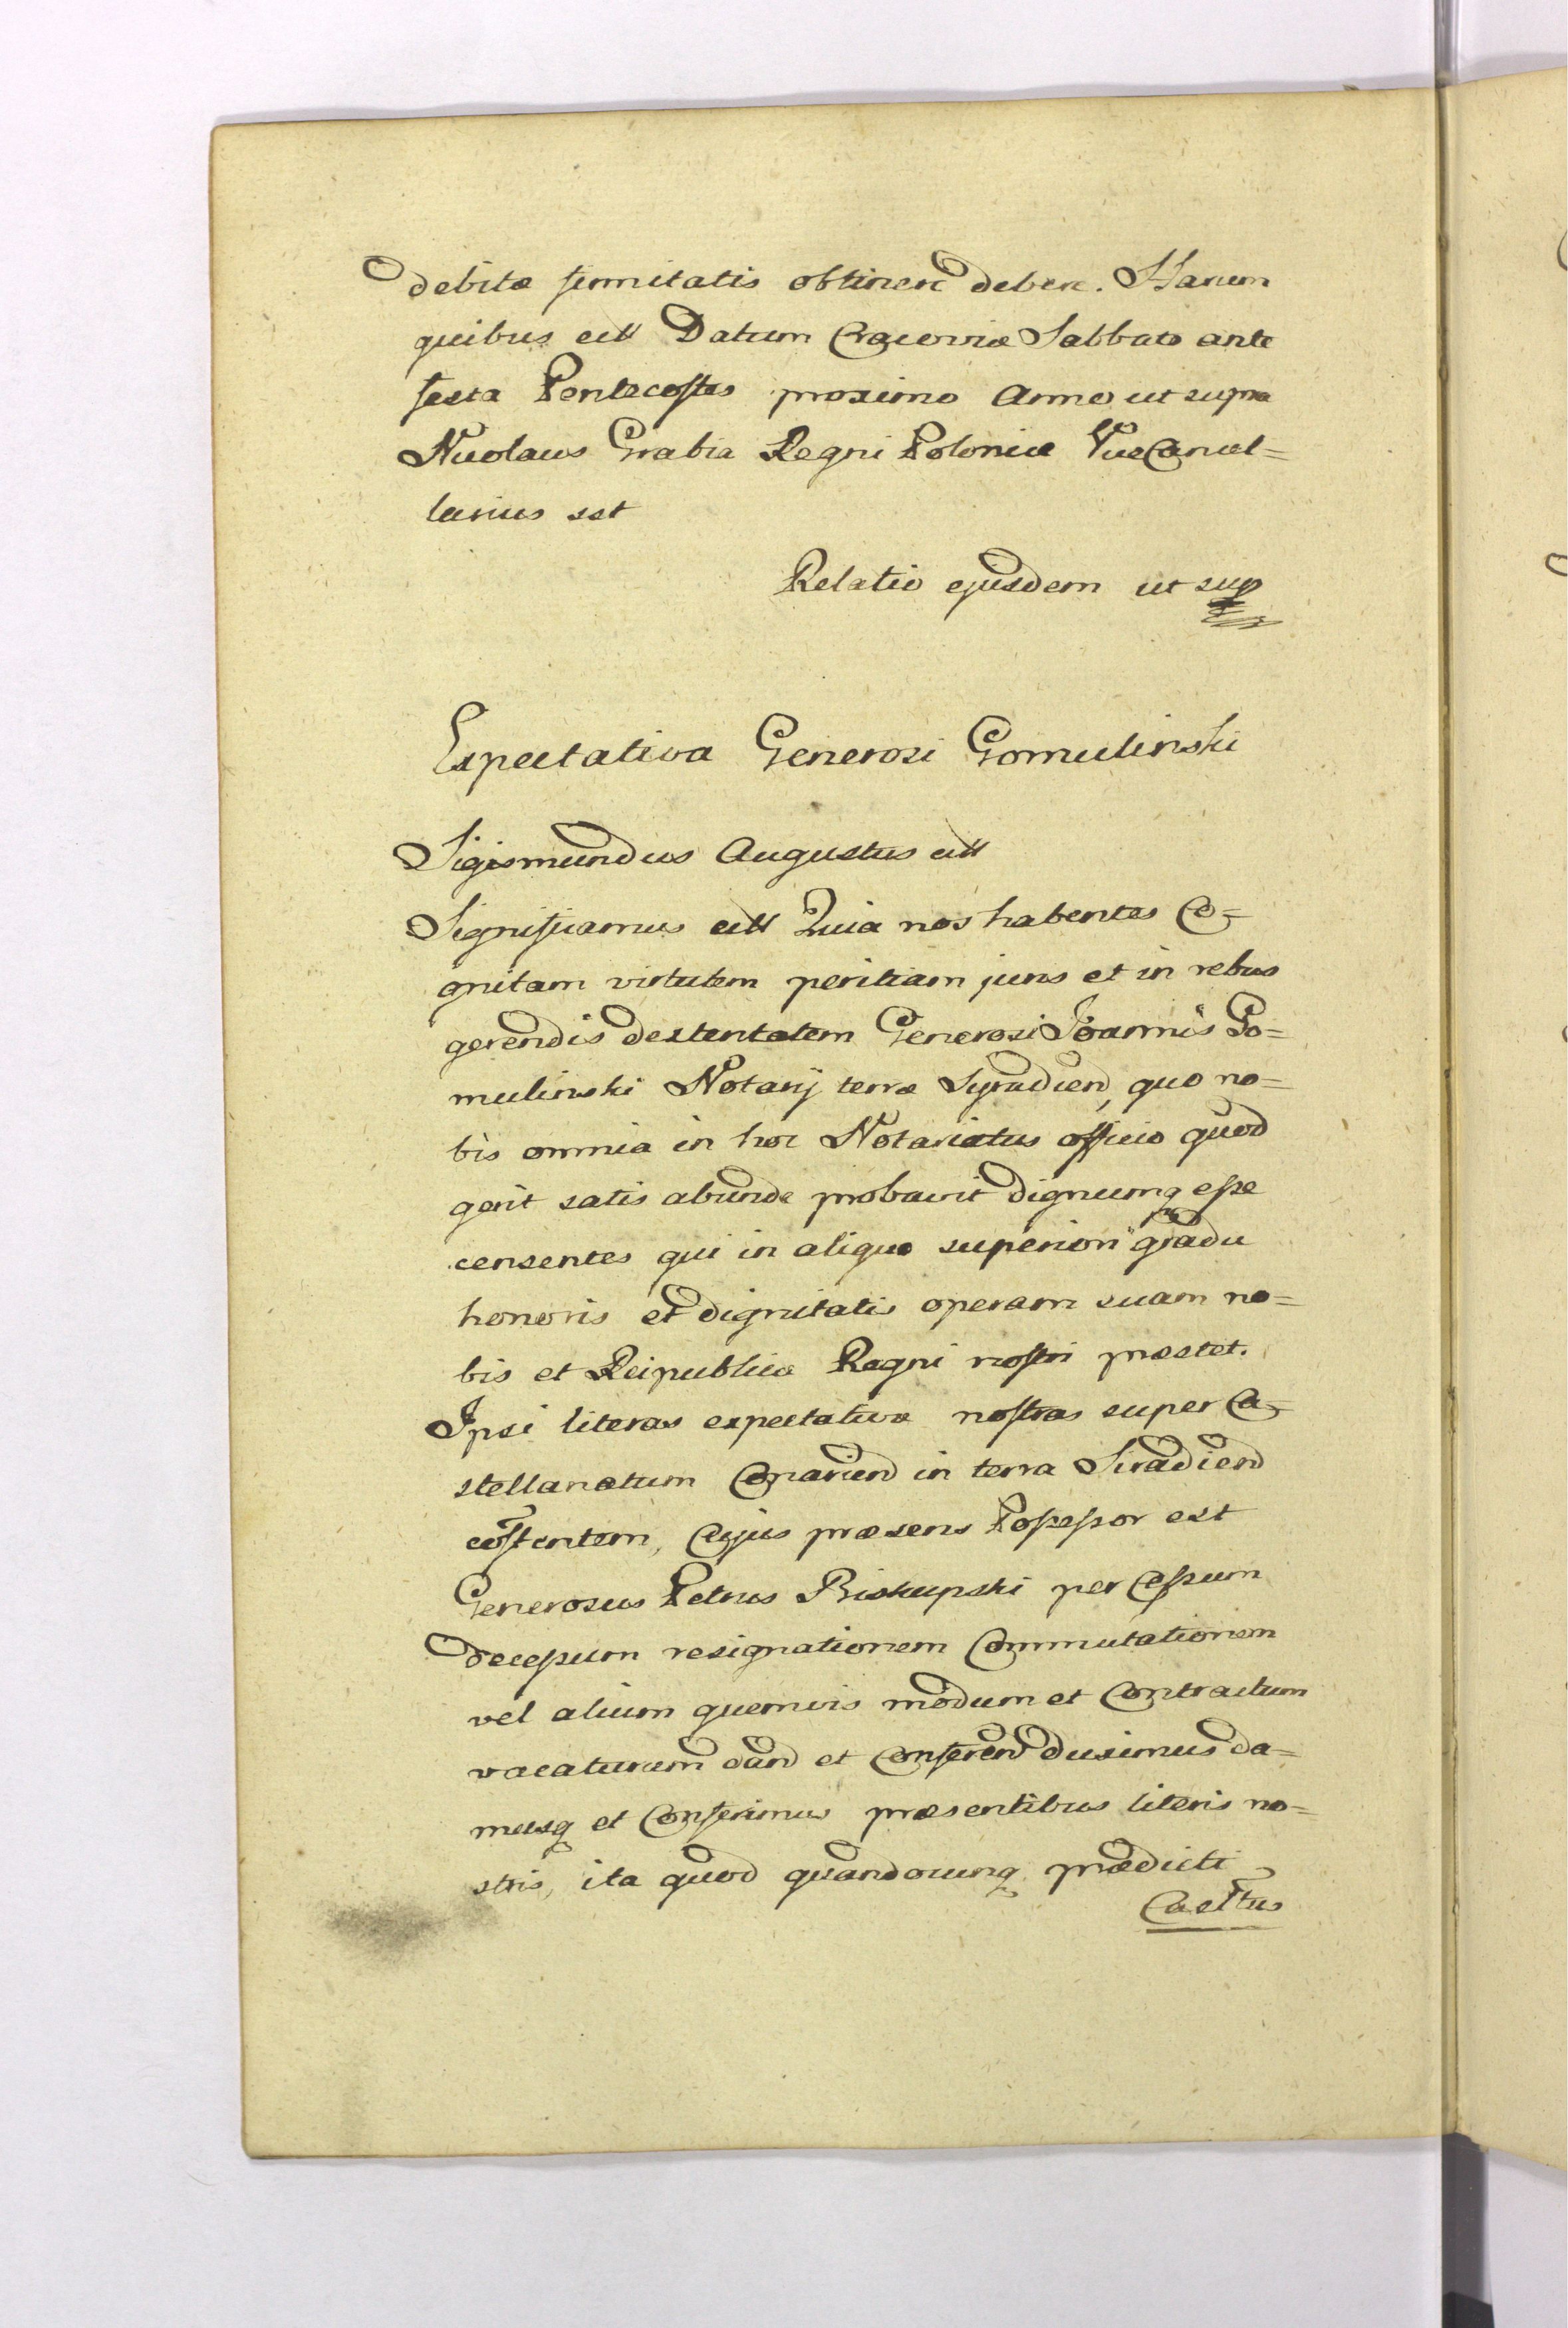 debitæ firmitatis obtinere debere. Harum
quibus ett Datum Cracoviæ Sabbato ante
festa Pentecostes proximo Anno ut supra
Nicolaus Grabia Regni Poloniæ ViceCancel=
larius sst
Relatio ejusdem ut sup
Expectativa Generosi Gomulinski
Sigismundus Augustus ett
Significamus ett Quia nos habentes Co=
gnitam virtutem peritiam juris et in rebus
gerendis dexteritatem Generosi Joannis Go=
mulinski Notarij terræ Syradien, quo no=
bis omnia in hoc Notariatus officio quod
gerit satis abunde probavit dignumq esse
censentes qui in aliquo superiori gradu
honoris et dignitatis operam suam no=
bis et Reipublicæ Regni nostri præstet.
Ipsi literas expectativæ nostras super Ca=
stellanatum Conarien in terra Siradien
costentem, Cujus præsens Possessor est
Generosus Petrus Biskupski per Cessum
decessum resignationem Commutationem
vel alium quemvis modum et Contractum
vacaturum dand et Conferend duximus da=
musq et Conferimus præsentibus literis no=
stris, ita quod quandocunq prædicti
Castus